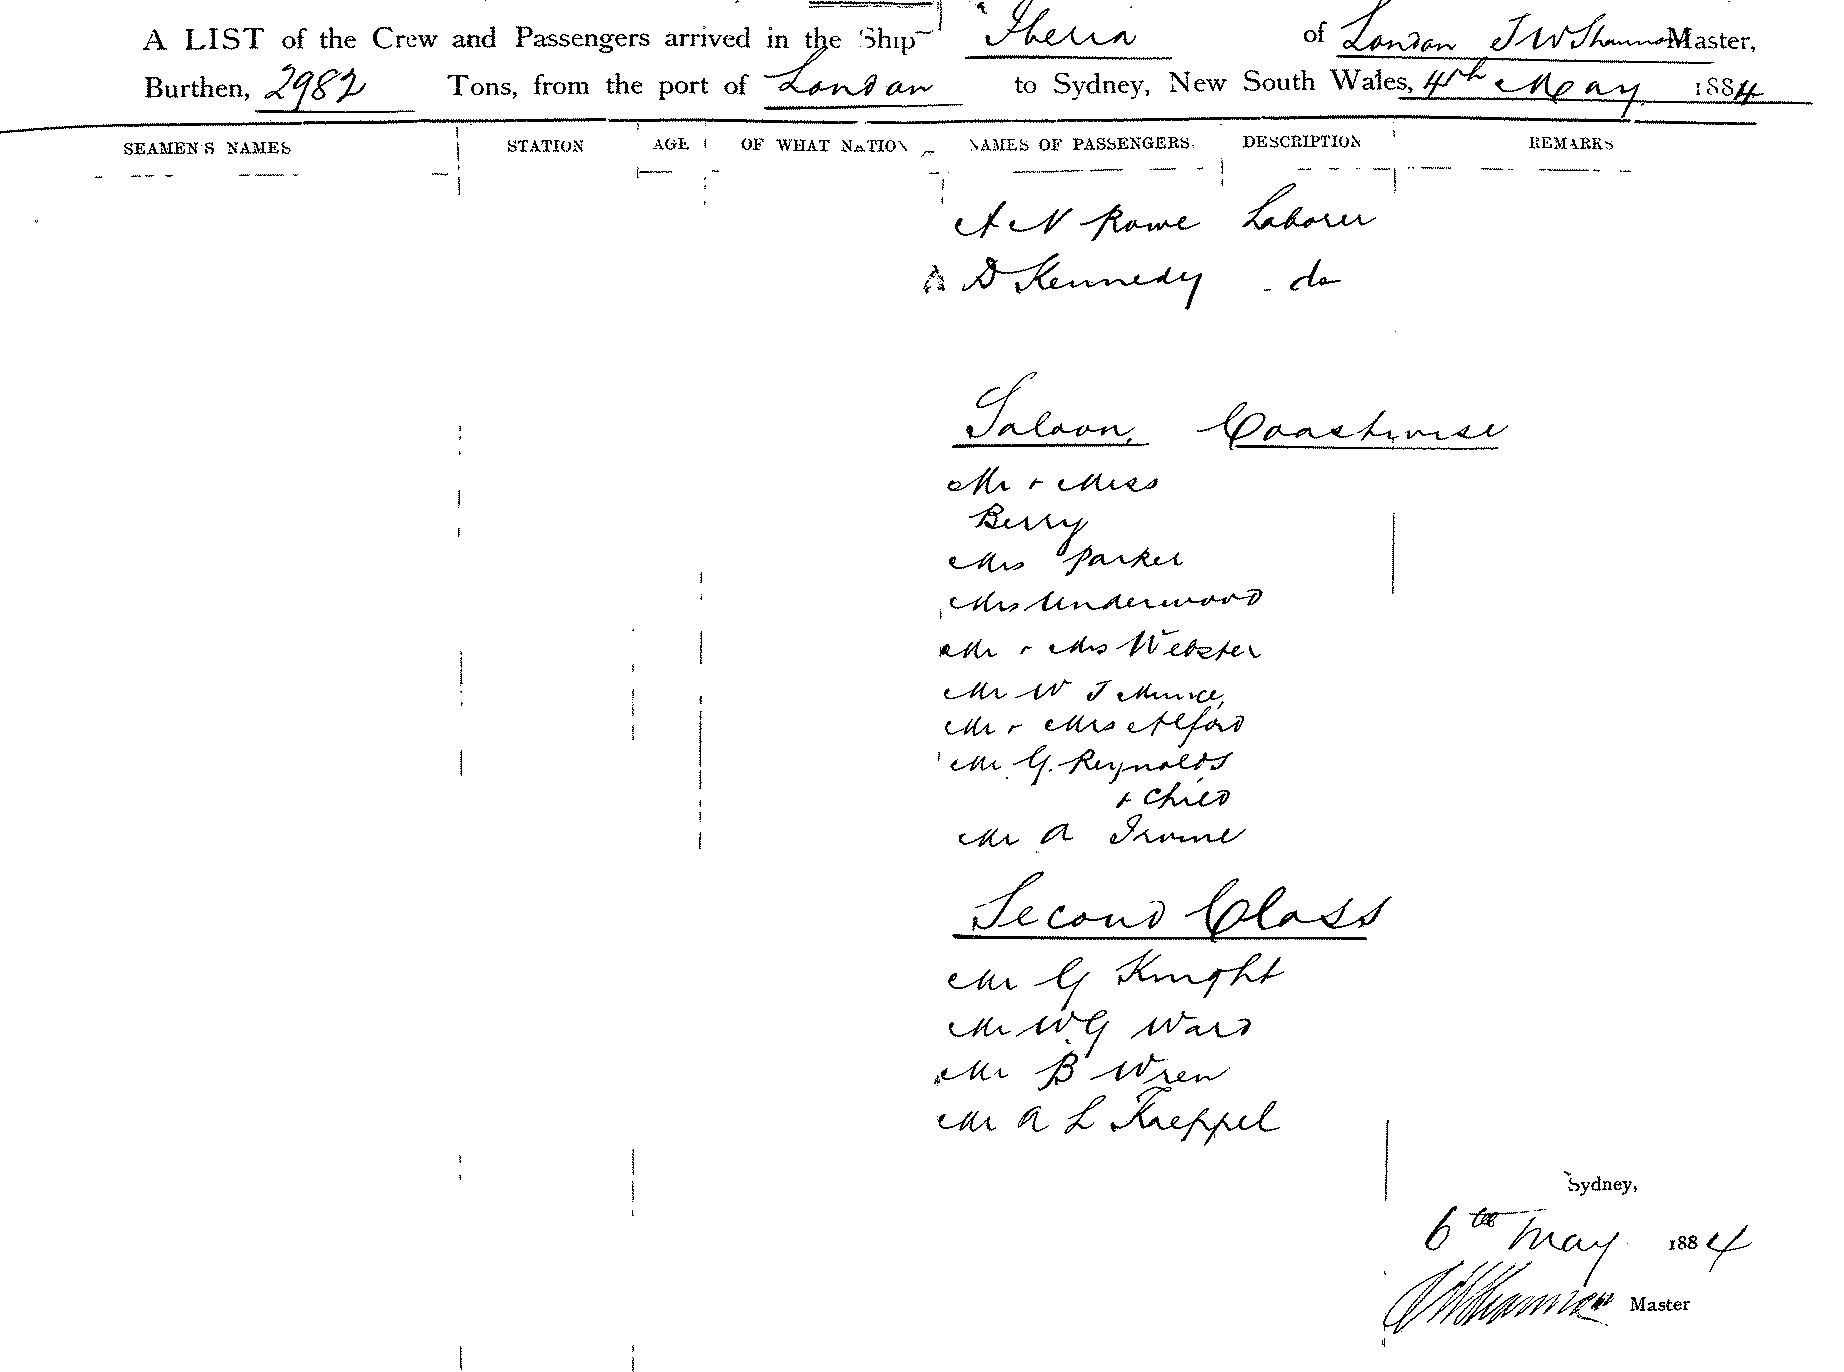 A LIST of the Crew and Passengers arrived in the Ship "Iberia of London J W Shannon Master,
Burthen, 2982 Tons, from the port of London to Sydney, New South Wales, 4th May 1884
SEAMENS NAMES STATION AGE OF WHAT NATION NAMES OF PASSENGERS. DESCRIPTION REMARKS
A N Rowe Laborer
D Kennedy - do
Saloon, Coastwise
Mr + Miss
Berry
Mrs Parker
Mrs Underwood
Mr + Mrs Webster
Mr W J Munce,
Mr + Mrs Alford
Mr G. Reynolds
+ Child
Mr A Irvine
Second Class
Mr G Knight
Mr W G Ward
Mr B Wren
Mr A L Kaeppel
Sydney,
6th May 1884
J W Shannon Master